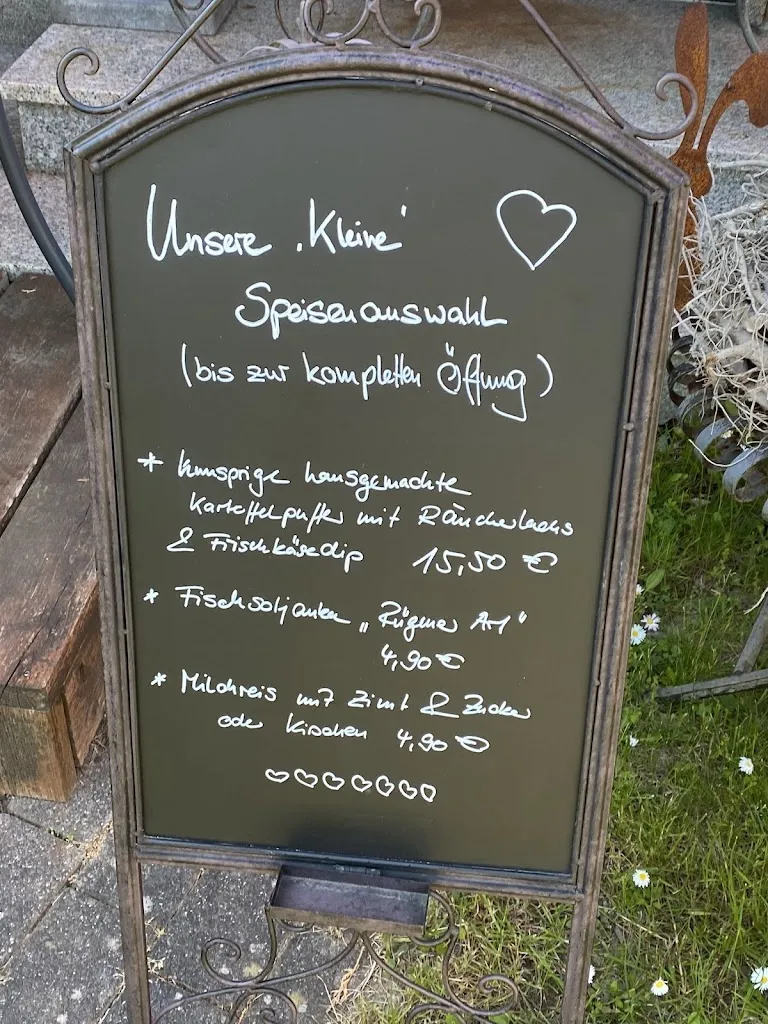 Unsere "Kleine"
Speisenauswahl
(bis zur kompletten Öffnung)
* knusprige hausgemachte
Kartoffelpuffer mit Räucherlachs
& Frischkäsedip 15,50 €
* Fischsoljanka „Rügener Art"
4,90 €
* Milchreis mit Zimt & Zucker
oder Kirschen 4,90 €